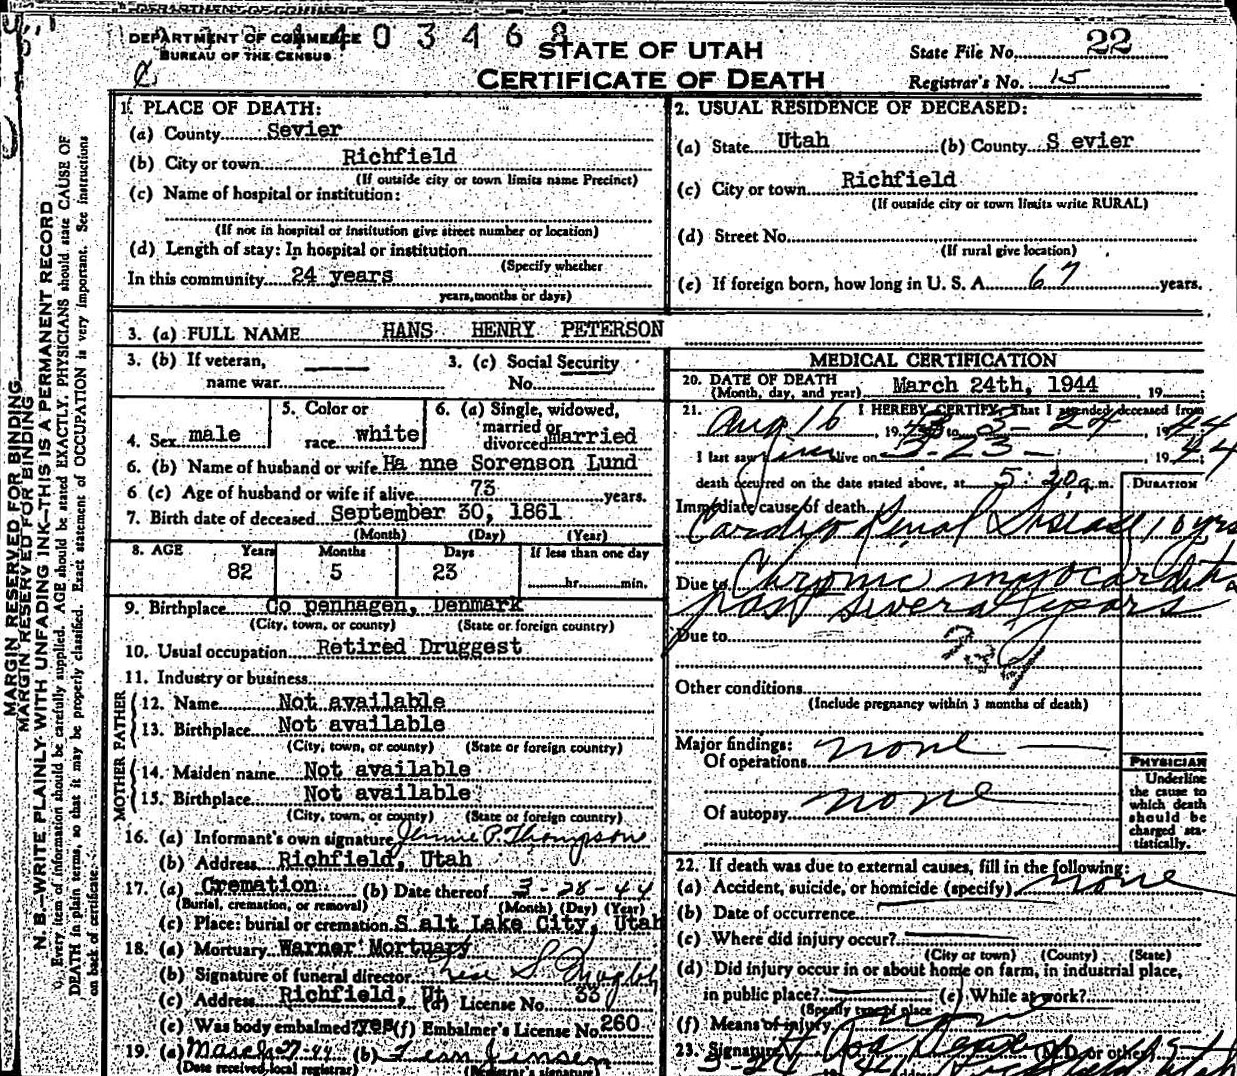 DEPARTMENT OF COMMERCE
BUREAU OF THE CENSUS
4 4 0 3 4 6 8
STATE OF UTAH
CERTIFICATE OF DEATH
State File No. 22
Registrar's No. 15
MARGIN RESERVED FOR BINDING
MARGIN RESERVED FOR BINDING
N. B.—WRITE PLAINLY WITH UNFADING INK—THIS IS A PERMANENT RECORD
Every item of information should be carefully supplied. AGE should be stated EXACTLY. PHYSICIANS should state CAUSE OF
DEATH in plain terms, so that it may be properly classified. Exact statement of OCCUPATION is very important. See instructions
on back of certificate.
1. PLACE OF DEATH:
(a) County Sevier
(b) City or town Richfield
(If outside city or town limits name Precinct)
(c) Name of hospital or institution:
(If not in hospital or institution give street number or location)
(d) Length of stay: In hospital or institution
(Specify whether
In this community 24 years
years, months or days)
2. USUAL RESIDENCE OF DECEASED:
(a) State Utah (b) County S evier
(c) City or town Richfield
(If outside city or town limits write RURAL)
(d) Street No.
(If rural give location)
(e) If foreign born, how long in U. S. A. 67 years.
3. (a) FULL NAME HANS HENRY PETERSON
3. (b) If veteran,
name war
3. (c) Social Security
No.
4. Sex male
5. Color or
race white
6. (a) Single, widowed,
married or
divorced married
6. (b) Name of husband or wife Ha nne Sorenson Lund
6 (c) Age of husband or wife if alive 73 years.
7. Birth date of deceased September 30, 1861
(Month) (Day) (Year)
8. AGE Years Months Days If less than one day
82 5 23 hr. min.
9. Birthplace Co penhagen, Denmark
(City, town, or county) (State or foreign country)
10. Usual occupation Retired Druggest
11. Industry or business
FATHER
12. Name Not available
13. Birthplace Not available
(City, town, or county) (State or foreign country)
MOTHER
14. Maiden name Not available
15. Birthplace Not available
(City, town, or county) (State or foreign country)
16. (a) Informant's own signature Jennie P. Thompson
(b) Address Richfield, Utah
17. (a) Cremation (b) Date thereof 3-28-44
(Burial, cremation, or removal) (Month) (Day) (Year)
(c) Place: burial or cremation S alt Lake City, Utah
18. (a) Mortuary Warner Mortuary
(b) Signature of funeral director
(c) Address Richfield, Ut (d) License No. 33
(e) Was body embalmed? yes (f) Embalmer's License No. 260
19. (a) March 27-44 (b) Jensen
(Date received local registrar) (Registrar's signature)
MEDICAL CERTIFICATION
20. DATE OF DEATH
(Month, day, and year) March 24th, 1944, 19
21. I HEREBY CERTIFY, That I attended deceased from
Aug 16, 1943 to 3-24, 1944
I last saw him alive on 3-23-, 1944
death occurred on the date stated above, at 5:20 a.m.
DURATION
Immediate cause of death
Cardio Renal Disease 10 yrs
Due to Chronic myocarditis
past several years
Due to
Other conditions
(Include pregnancy within 3 months of death)
Major findings:
Of operations none
Of autopsy none
PHYSICIAN
Underline
the cause to
which death
should be
charged sta-
tistically.
22. If death was due to external causes, fill in the following:
(a) Accident, suicide, or homicide (specify) none
(b) Date of occurrence
(c) Where did injury occur?
(City or town) (County) (State)
(d) Did injury occur in or about home on farm, in industrial place,
in public place? (e) While at work?
(Specify type of place
(f) Means of injury none
23. Signature (M.D. or other)
3-24 44 Richfield Utah